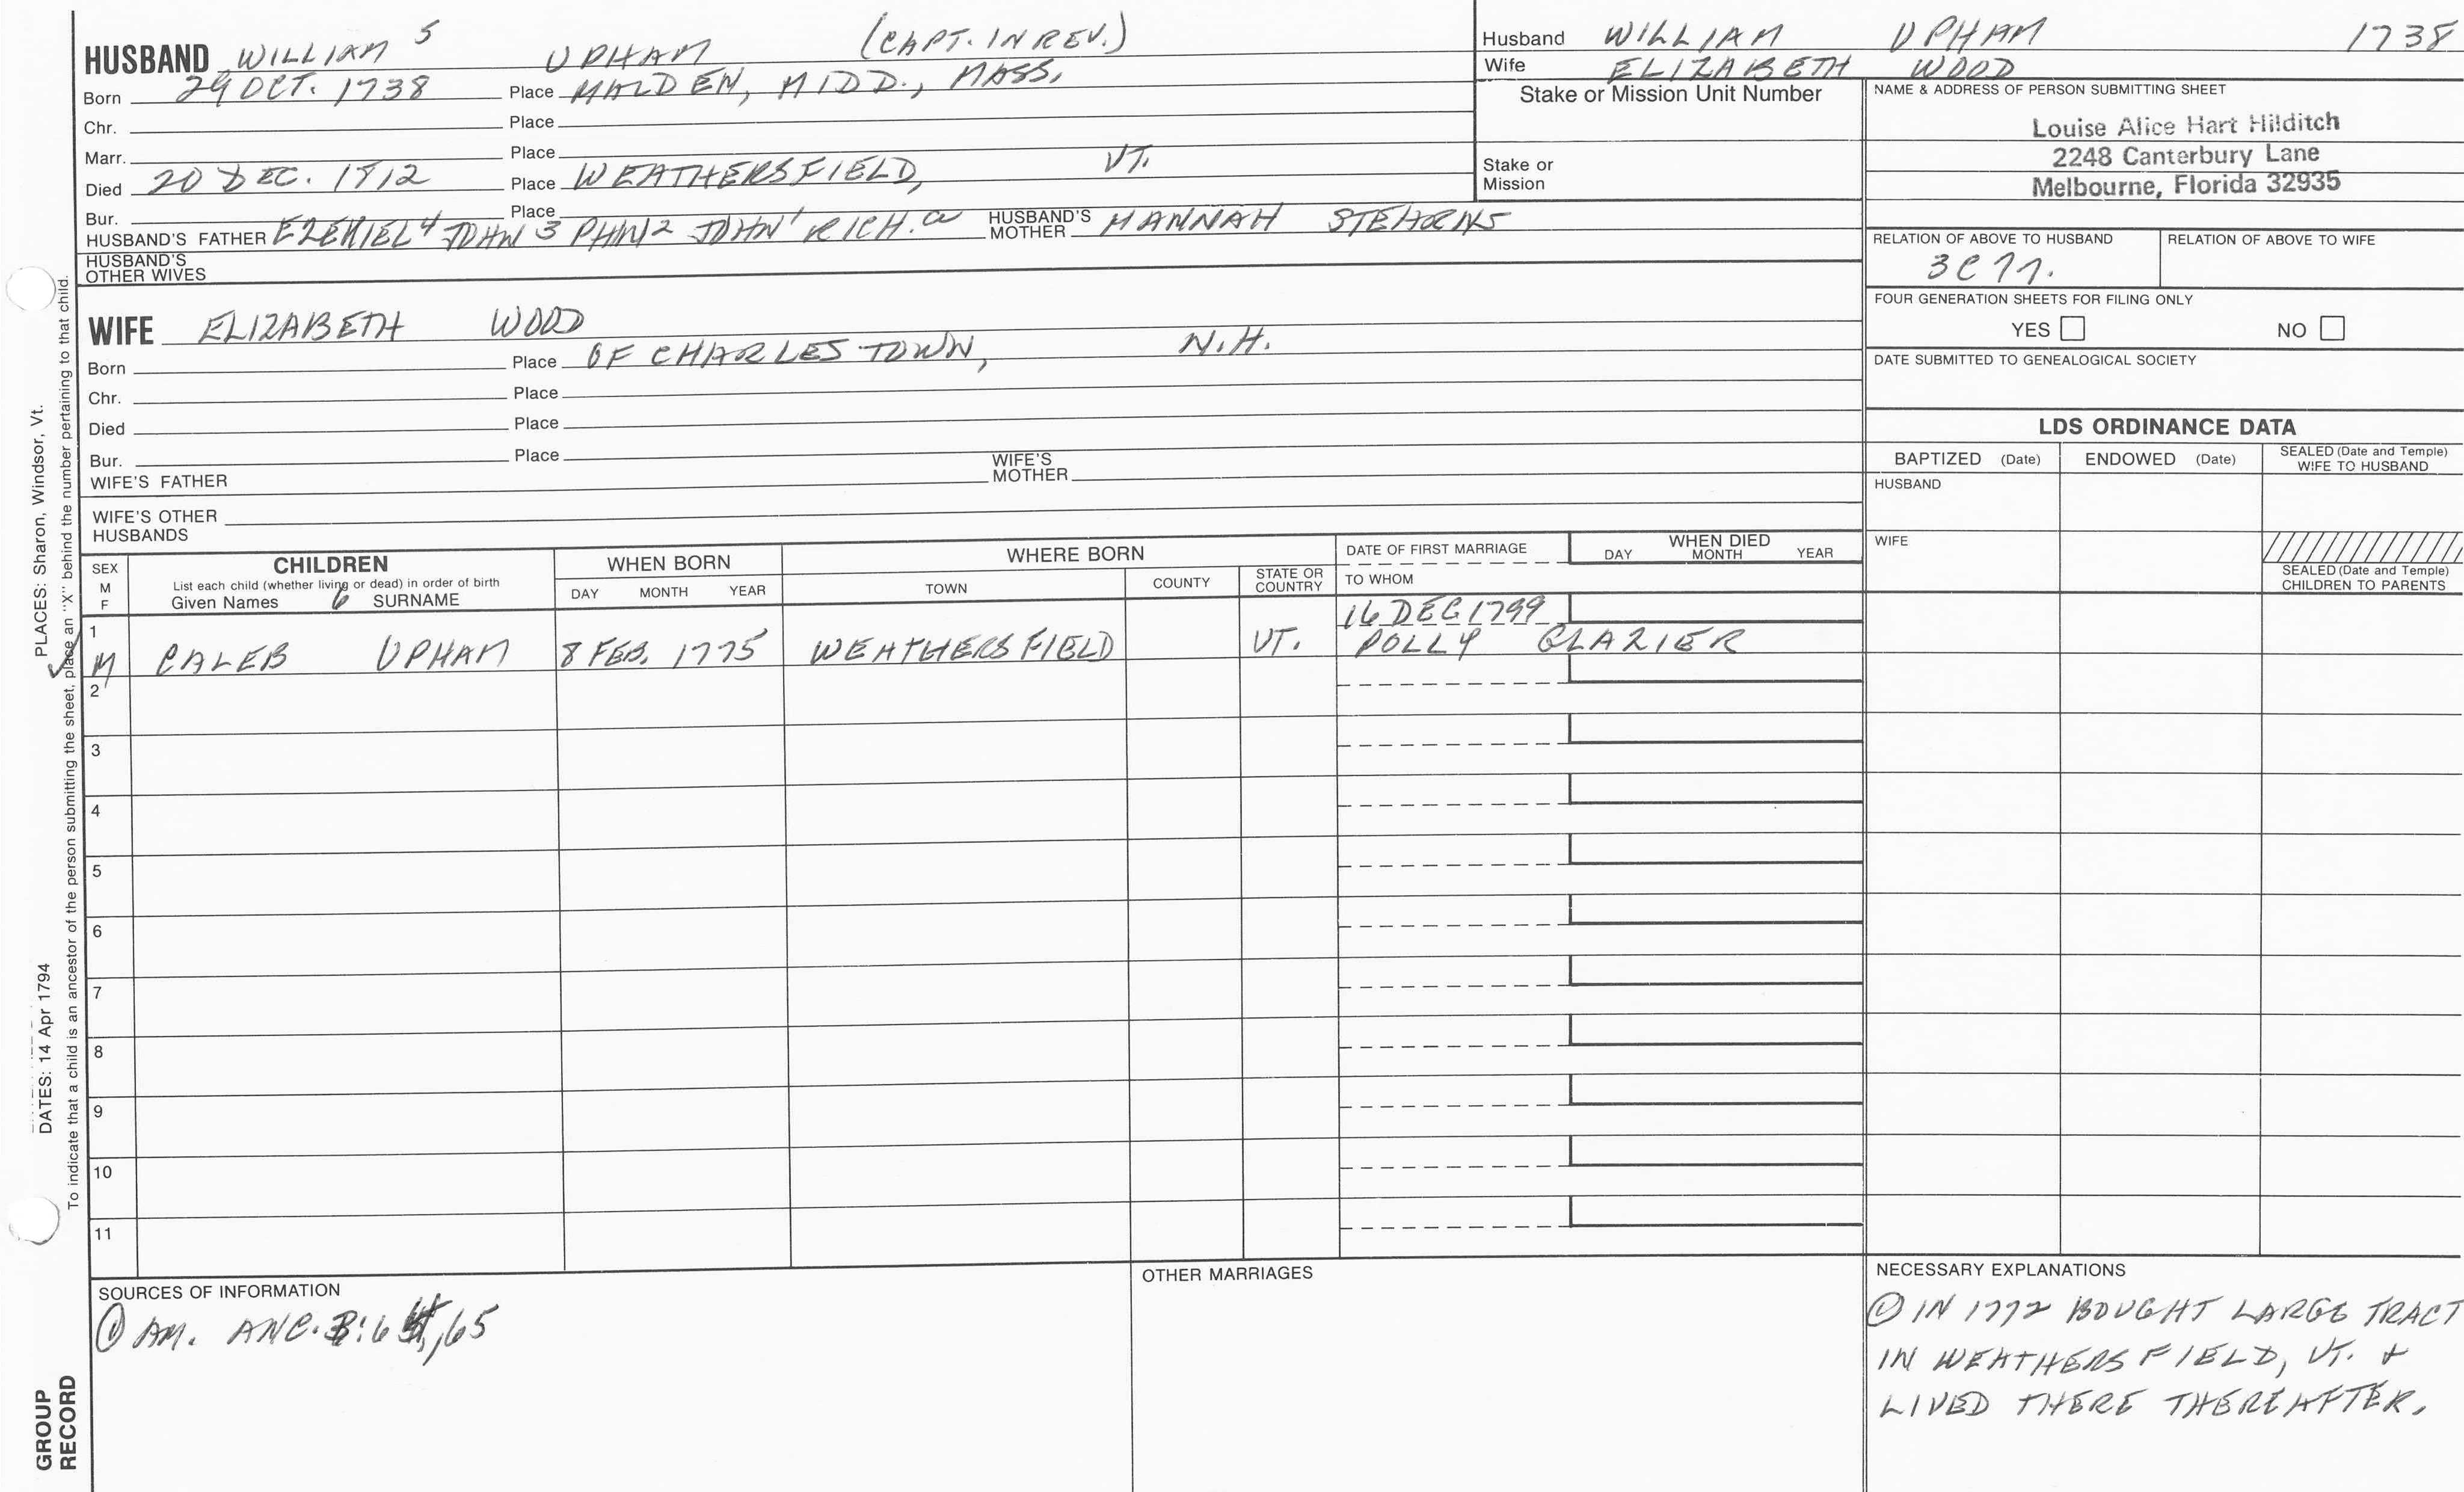 HUSBAND WILLIAM 5 UPHAM (CAPT. IN REV.)
Born 29 OCT. 1738 Place MALDEN, MIDD., MASS.
Chr. Place
Marr. Place
Died 20 DEC. 1812 Place WEATHERSFIELD, VT.
Bur. Place
HUSBAND'S FATHER EZEKIEL 4 JOHN 3 PHIN 2 JOHN 1 RICH. HUSBAND'S MOTHER HANNAH STEARNS
HUSBAND'S OTHER WIVES
WIFE ELIZABETH WOOD
Born Place OF CHARLESTOWN, N.H.
Chr. Place
Died Place
Bur. Place
WIFE'S FATHER WIFE'S MOTHER
WIFE'S OTHER HUSBANDS
Husband WILLIAM UPHAM 1738
Wife ELIZABETH WOOD
Stake or Mission Unit Number
Stake or Mission
NAME & ADDRESS OF PERSON SUBMITTING SHEET
Louise Alice Hart Hilditch
2248 Canterbury Lane
Melbourne, Florida 32935
RELATION OF ABOVE TO HUSBAND RELATION OF ABOVE TO WIFE
FOUR GENERATION SHEETS FOR FILING ONLY
YES NO
DATE SUBMITTED TO GENEALOGICAL SOCIETY
LDS ORDINANCE DATA
BAPTIZED (Date) ENDOWED (Date) SEALED (Date and Temple) WIFE TO HUSBAND
HUSBAND
WIFE
SEALED (Date and Temple) CHILDREN TO PARENTS
SEX M F
CHILDREN
List each child (whether living or dead) in order of birth
Given Names 6 SURNAME
WHEN BORN
DAY MONTH YEAR
WHERE BORN
TOWN COUNTY STATE OR COUNTRY
DATE OF FIRST MARRIAGE
TO WHOM
WHEN DIED
DAY MONTH YEAR
1 16 DEC 1799
M CALEB UPHAM 8 FEB. 1775 WEATHERSFIELD VT. POLLY GLAZIER
2
3
4
5
6
7
8
9
10
11
SOURCES OF INFORMATION
① AM. ANC. 65
OTHER MARRIAGES
NECESSARY EXPLANATIONS
① IN 1772 BOUGHT LARGE TRACT
IN WEATHERSFIELD, VT. +
LIVED THERE THEREAFTER.
PLACES: Sharon, Windsor, Vt.
DATES: 14 Apr 1794
To indicate that a child is an ancestor of the person submitting the sheet, place an "X" behind the number pertaining to that child.
GROUP
RECORD